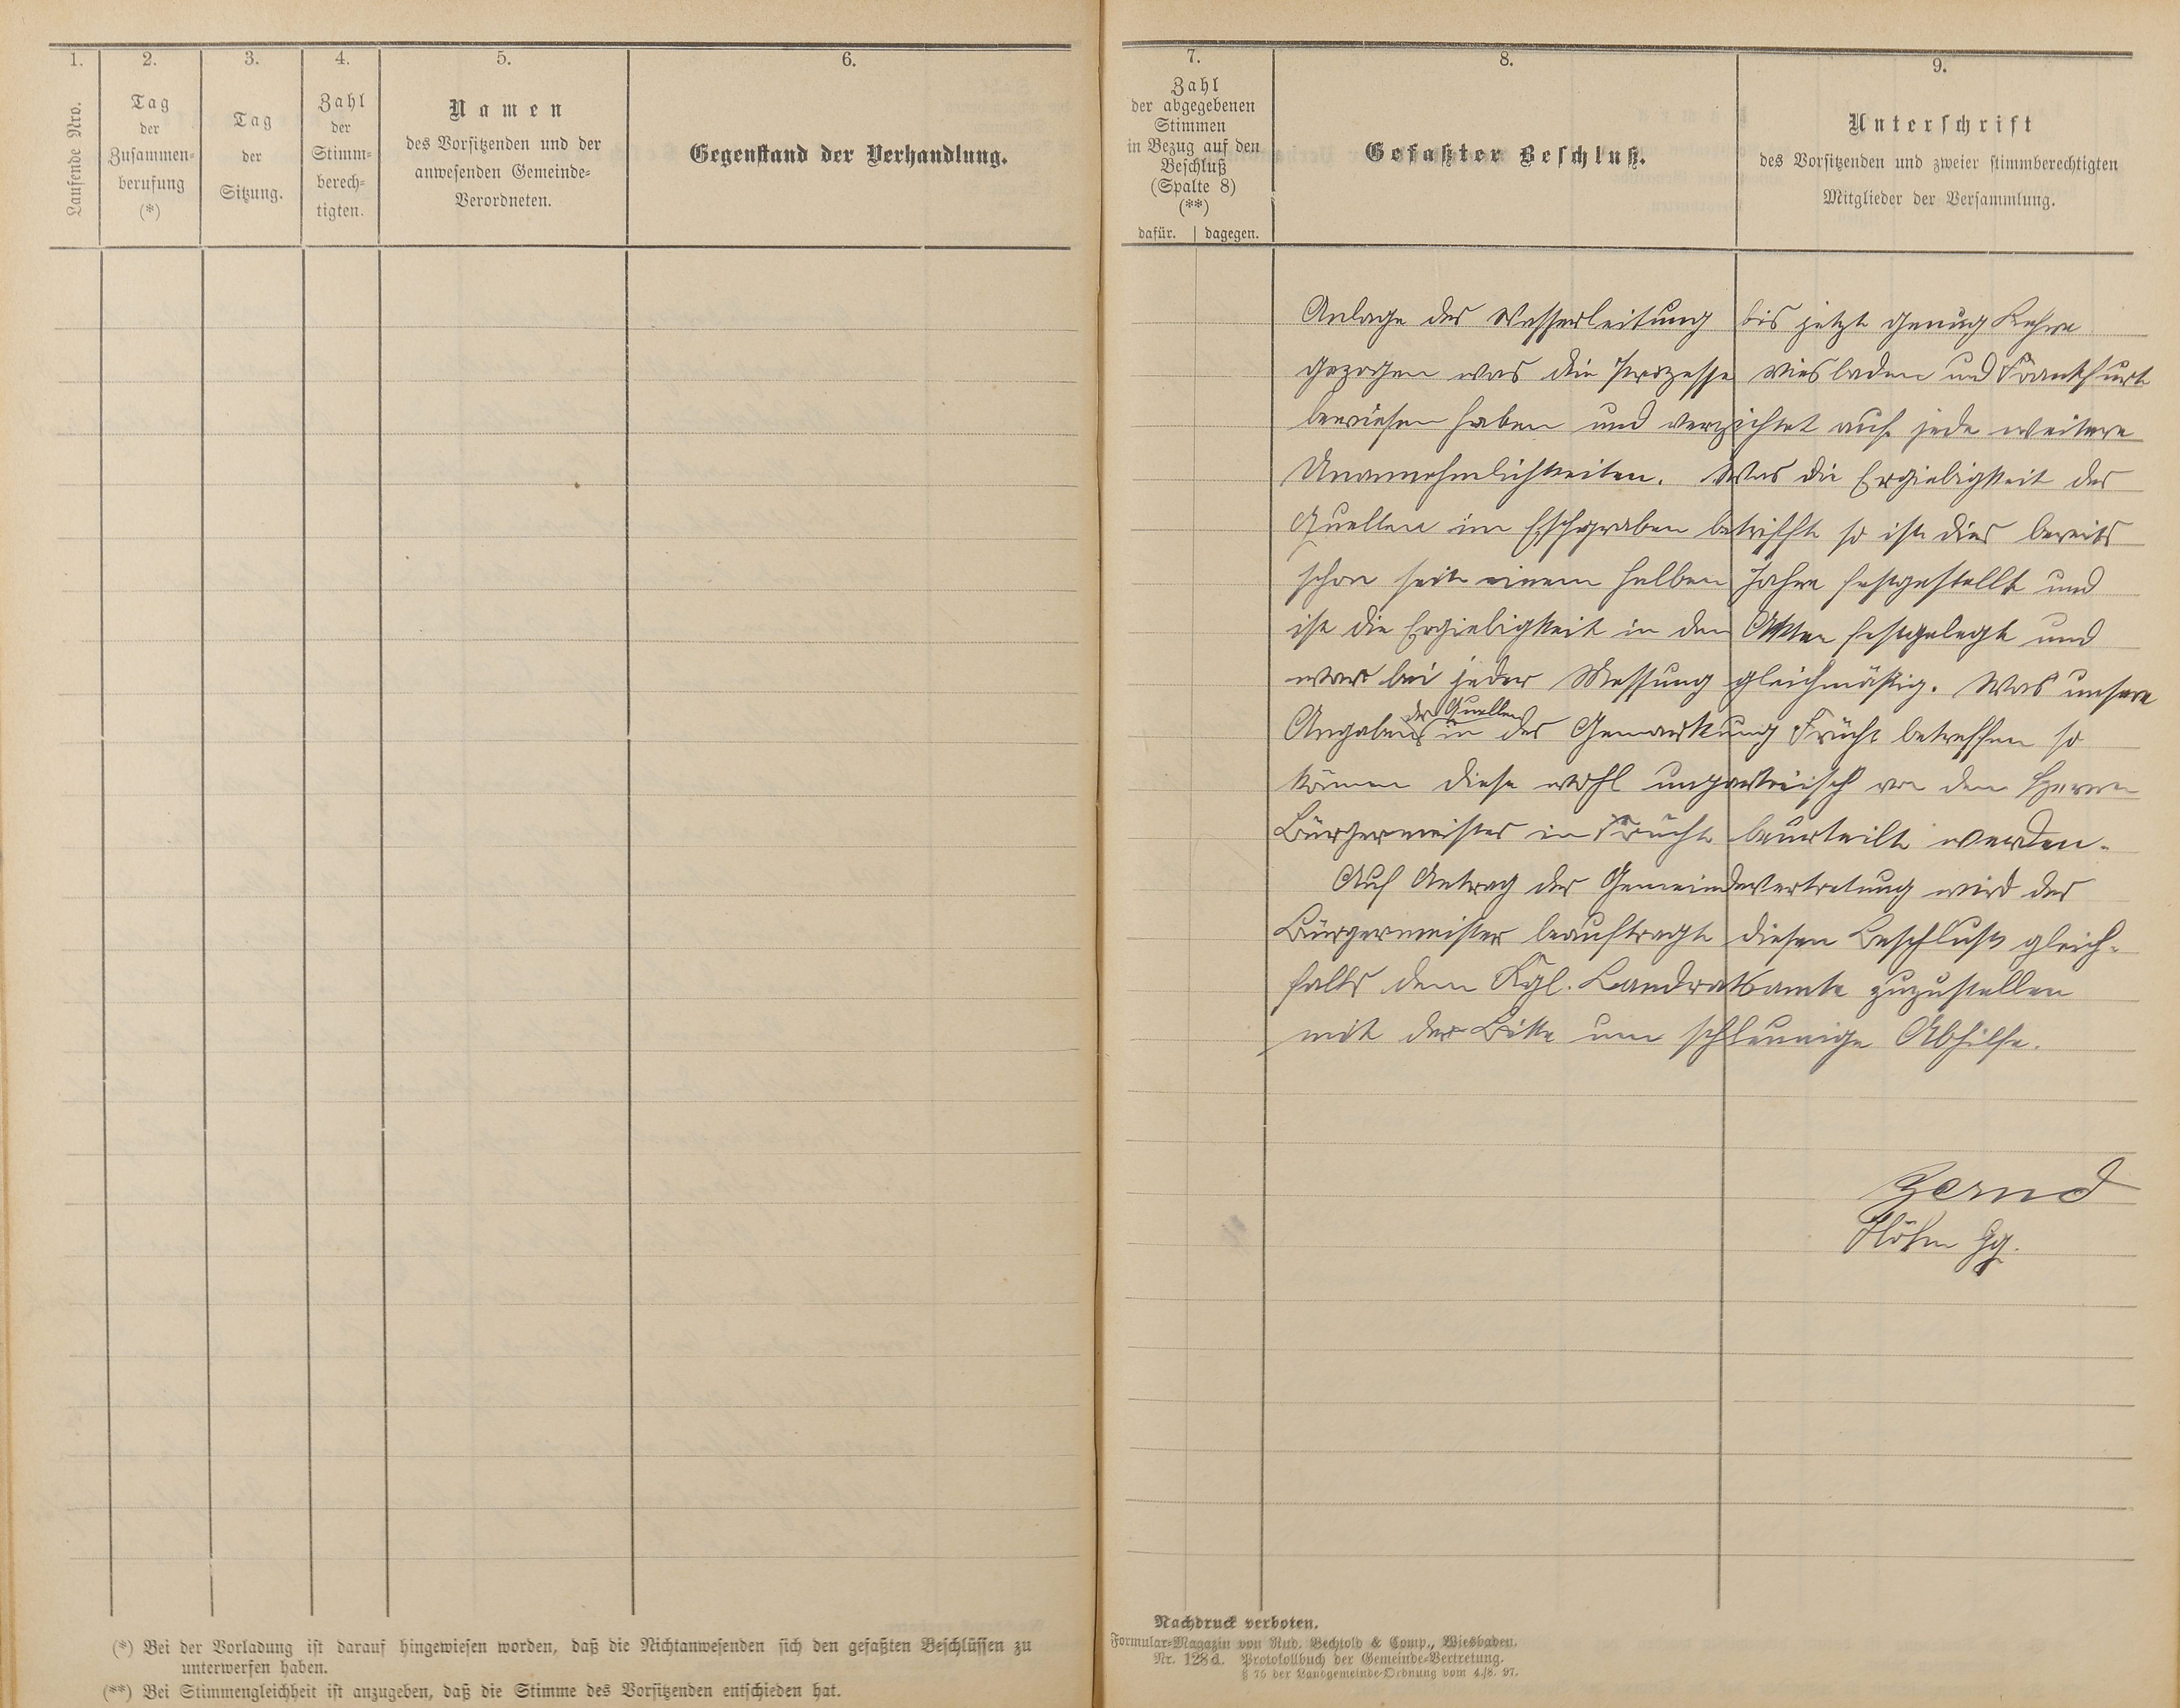 1.
2.
3.
4.
5.
6.
Laufende Nro.
Tag
der
Zusammen-
berufung
(*)
Tag
der
Sitzung.
Zahl
der
Stimm-
berech-
tigten.
Namen
des Vorsitzenden und der
anwesenden Gemeinde-
Verordneten.
Gegenstand der Verhandlung.
(*) Bei der Vorladung ist darauf hingewiesen worden, daß die Nichtanwesenden sich den gefaßten Beschlüssen zu
unterwerfen haben.
(**) Bei Stimmengleichheit ist anzugeben, daß die Stimme des Vorsitzenden entschieden hat.
7.
8.
9.
Zahl
der abgegebenen
Stimmen
in Bezug auf den
Beschluß
(Spalte 8)
(**)
dafür. dagegen.
Gefaßter Beschluß.
Unterschrift
des Vorsitzenden und zweier stimmberechtigten
Mitglieder der Versammlung.
Anlage der Wasserleitung bis jetzt genug Lehre
gezogen was die Prozesse Wiesbaden und Frankfurt
bewiesen haben und verzichtet auf jede weitere
Unannehmlichkeiten. Was die Ergiebigkeit der
Quellen im Eschgraben betrifft so ist dies bereits
schon seit einem halben Jahre festgestellt und
ist die Ergiebigkeit in den Akten festgelegt und
war bei jeder Messung gleichmäßig. Was unsere
der Quellen
Angaben in der Gemarkung Frücht betreffen so
können diese wohl unparteiisch von dem Herrn
Bürgermeister in Frücht beurteilt werden.
Auf Antrag der Gemeindevertretung wird der
Bürgermeister beauftragt diesen Beschluß gleich-
falls dem Kgl. Landratsamte zuzustellen
mit der Bitte um schleunige Abhilfe.
Flöhn Gg.
Nachdruck verboten.
Formular-Magazin von Rud. Bechtold & Comp., Wiesbaden.
Nr. 128d. Protokollbuch der Gemeinde-Vertretung.
§ 76 der Landgemeinde-Ordnung vom 4./8. 97.